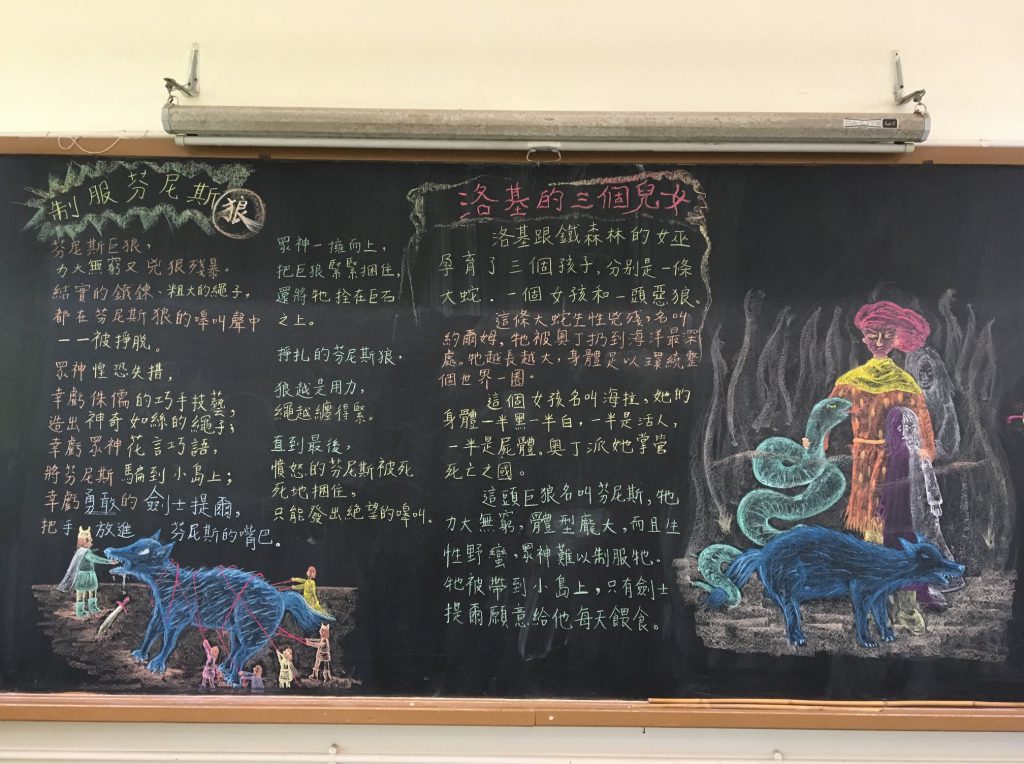 制服芬尼斯狼
芬尼斯巨狼，
力大無窮又兇狠殘暴。
結實的鐵鍊、粗大的繩子，
都在芬尼斯狼的嗥叫聲中
一一被掙脫。
眾神惶恐失措，
幸虧侏儒的巧手技藝，
造出神奇如絲的繩子；
幸虧眾神花言巧語，
將芬尼斯騙到小島上；
幸虧勇敢的劍士提爾，
把手放進 芬尼斯的嘴巴。
眾神一擁而上，
把巨狼緊緊捆住，
還將牠拴在巨石
之上。
掙扎的芬尼斯狼，
狼越是用力，
繩越纏得緊。
直到最後，
憤怒的芬尼斯被死
死地捆住，
只能發出絕望的嗥叫。
洛基的三個兒女
洛基跟鐵森林的女巫
孕育了三個孩子，分別是一條
大蛇、一個女孩和一頭惡狼。
這條大蛇生性兇殘，名叫
約爾姆，牠被奧丁扔到海洋最深
處。牠越長越大，身體足以環繞整
個世界一圈。
這個女孩名叫海拉，她的
身體一半黑一半白，一半是活人，
一半是屍體。奧丁派她掌管
死亡之國。
這頭巨狼名叫芬尼斯，牠
力大無窮，體型龐大，而且生
性野蠻，眾神難以制服牠。
牠被帶到小島上，只有劍士
提爾願意給他每天餵食。